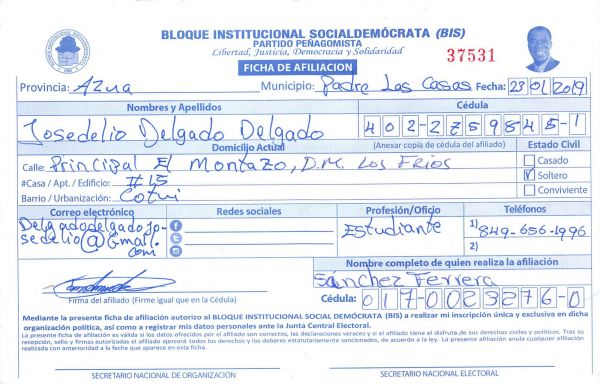 BLOQUE INSTITUCIONAL SOCIALDEMÓCRATA (BIS)
PARTIDO PEÑAGOMISTA
Libertad, Justicia, Democracia y Solidaridad
37531
FICHA DE AFILIACION
Provincia: Azua Municipio: Padre Las Casas Fecha: 23/01/2019
Nombres y Apellidos Cédula
Josedelio Delgado Delgado 402-2759845-1
Domicilio Actual (Anexar copia de cédula del afiliado) Estado Civil
Calle: Principal El Montazo, D.M. Los Frios Casado
#Casa / Apt. / Edificio: #15 Soltero
Barrio / Urbanización: Cotui Conviviente
Correo electrónico Redes sociales Profesión/Oficio Teléfonos
Delgadodelgadojo-
sedelio@Gmail.
com
Estudiante 1) 849-656-1996
2)
Nombre completo de quien realiza la afiliación
Sánchez Ferrera
Firma del afiliado (Firme igual que en la Cédula) Cédula: 017-0023276-0
Mediante la presente ficha de afiliación autorizo al BLOQUE INSTITUCIONAL SOCIAL DEMÓCRATA (BIS) a realizar mi inscripción única y exclusiva en dicha
organización política, así como a registrar mis datos personales ante la Junta Central Electoral.
La presente ficha de afiliación es válida si los datos ofrecidos por el afiliado son correctos, las declaraciones veraces y si el titular tiene el disfrute de sus derechos civiles y políticos. Tras su
recepción, sello y firmas autorizadas el afiliado ejercerá todos los derechos y los deberes estatutariamente sancionados, de acuerdo a la ley. La presente afiliación anula cualquier afiliación
realizada con anterioridad a la fecha que aparece en esta ficha.
SECRETARIO NACIONAL DE ORGANIZACIÓN SECRETARIO NACIONAL ELECTORAL